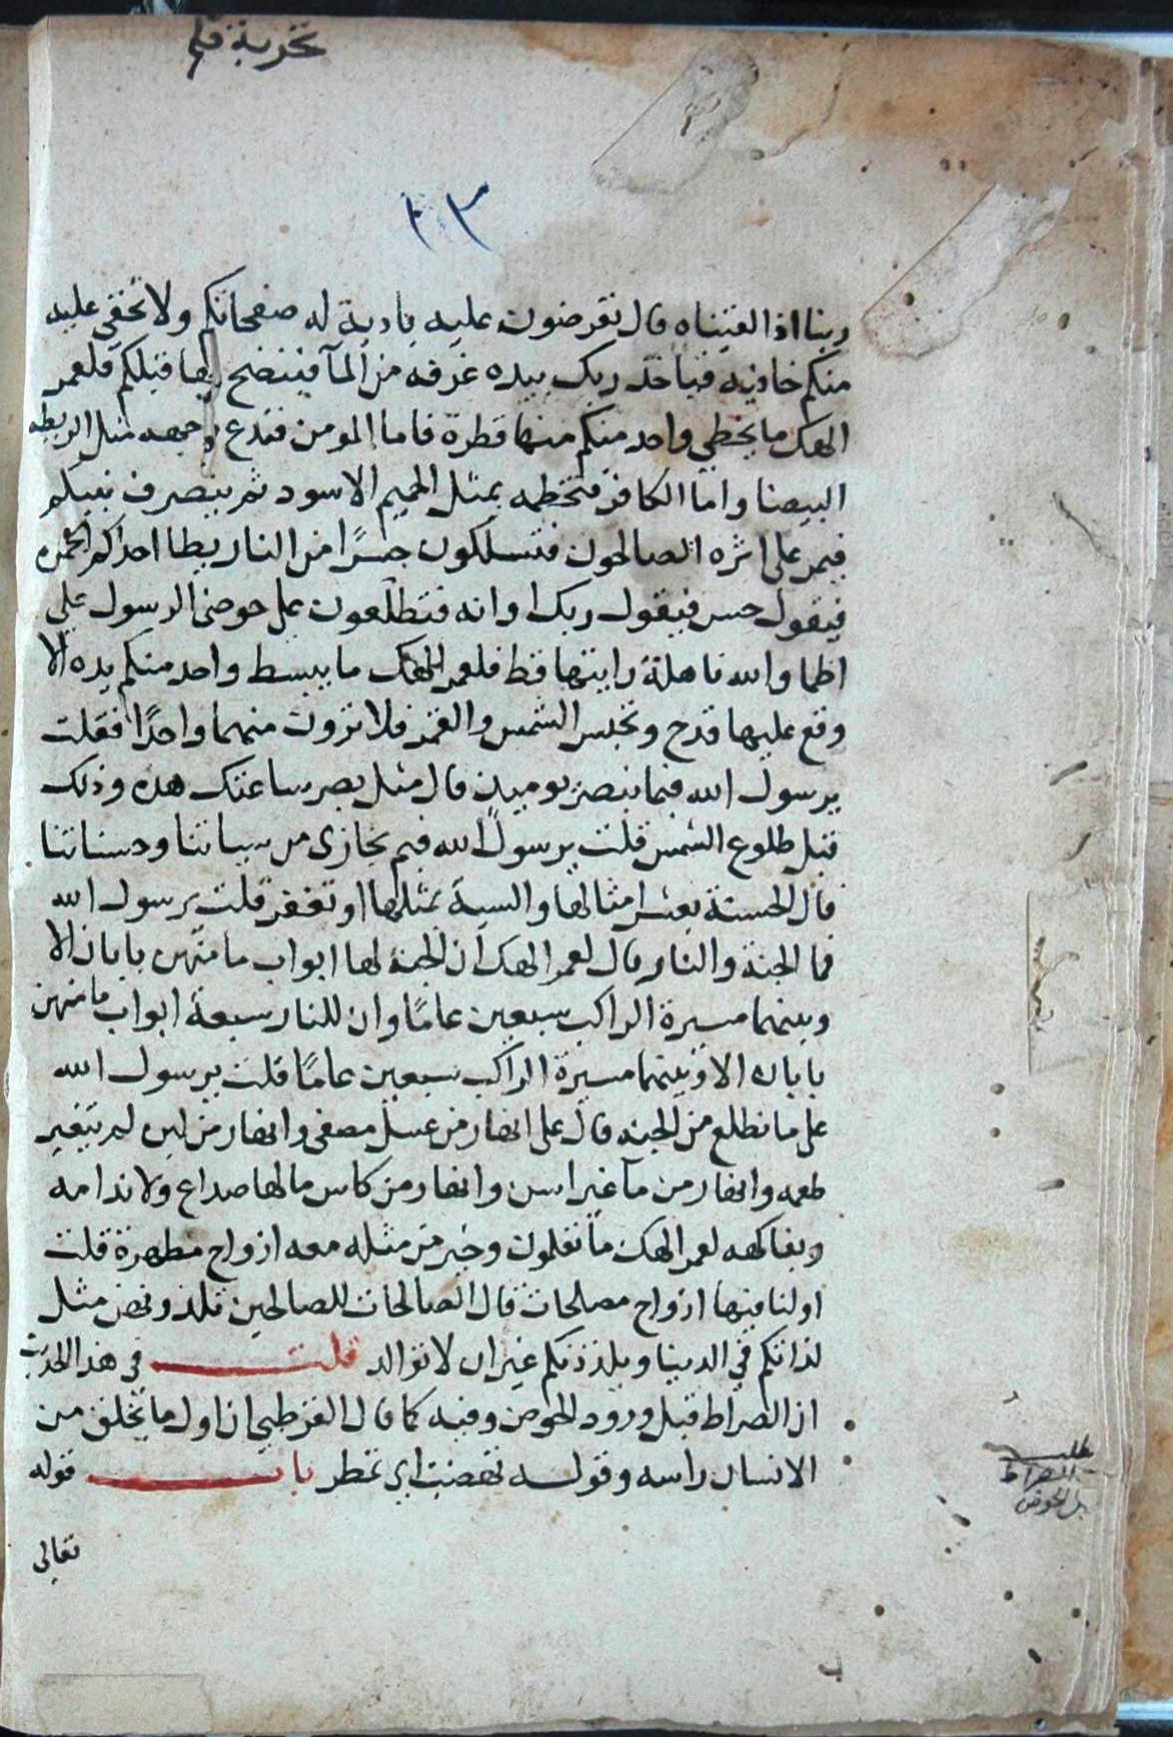 تجربة قلم
٢٣
ربنا اذا لقيناه قال تعرضون عليه بادية له صفحاتكم ولا تخفى عليه
منكم خافيه فياخذ ربك بيده غرفه من المآ فينضح بها قبلكم فلعمر
الهك ما يخطي واحد منكم منها قطرة فاما المومن فتدع وجهه مثل الريطه
البيضا واما الكافر فتخطمه بمثل الحميم الاسود ثم ينصرف نبيكم
فيمر على اثره الصالحون فتسلكون جسرًا من النار يطا احدكم الجمره
فيقول حس فيقول ربك اوانه فتطلعون على حوض الرسول على
اظما والله ناهلة رايتها قط فلعمر الهك ما يبسط واحد منكم يده الا
وقع عليها قدح وتحبس الشمس والقمر فلا ترون منهما واحدًا فقلت
يرسول الله فبما نبصر يوميذ قال مثل بصر ساعتك هذه وذلك
قبل طلوع الشمس قلت يرسول الله فبم نجازى من سياتنا وحسناتنا
قال الحسنة بعشر امثالها والسية بمثلها او تغفر قلت يرسول الله
فما الجنة والنار قال لعمر الهك ان الجنة لها ابواب ما منهن بابان الا
وبينهما مسيرة الراكب سبعين عامًا وان للنار سبعة ابواب ما منهن
بابان الا وبينهما مسيرة الراكب سبعين عامًا قلت يرسول الله
على ما نطلع من الجنه قال على انهار من عسل مصفى وانهار من لبن لم يتغير
طعمه وانهار من مآ غير اسن وانهار من كاس ما لها صداع ولا ندامه
وبفاكهه لعمر الهك ما تعلمون وخير من مثله معه ازواج مطهرة قلت
اولنا فيها ازواج مصلحات قال الصالحات للصالحين تلذونهن مثل
لذاتكم في الدنيا ويلذذنكم غير ان لا توالد قلت في هذا الحديث
ان الصراط قبل ورود الحوض وفيه كما قال القرطبي ان اول ما يخلق من
الانسان راسه وقوله تهضب اي تمطر باب قوله
تعالى
مطلب
الصراط
قبل الحوض